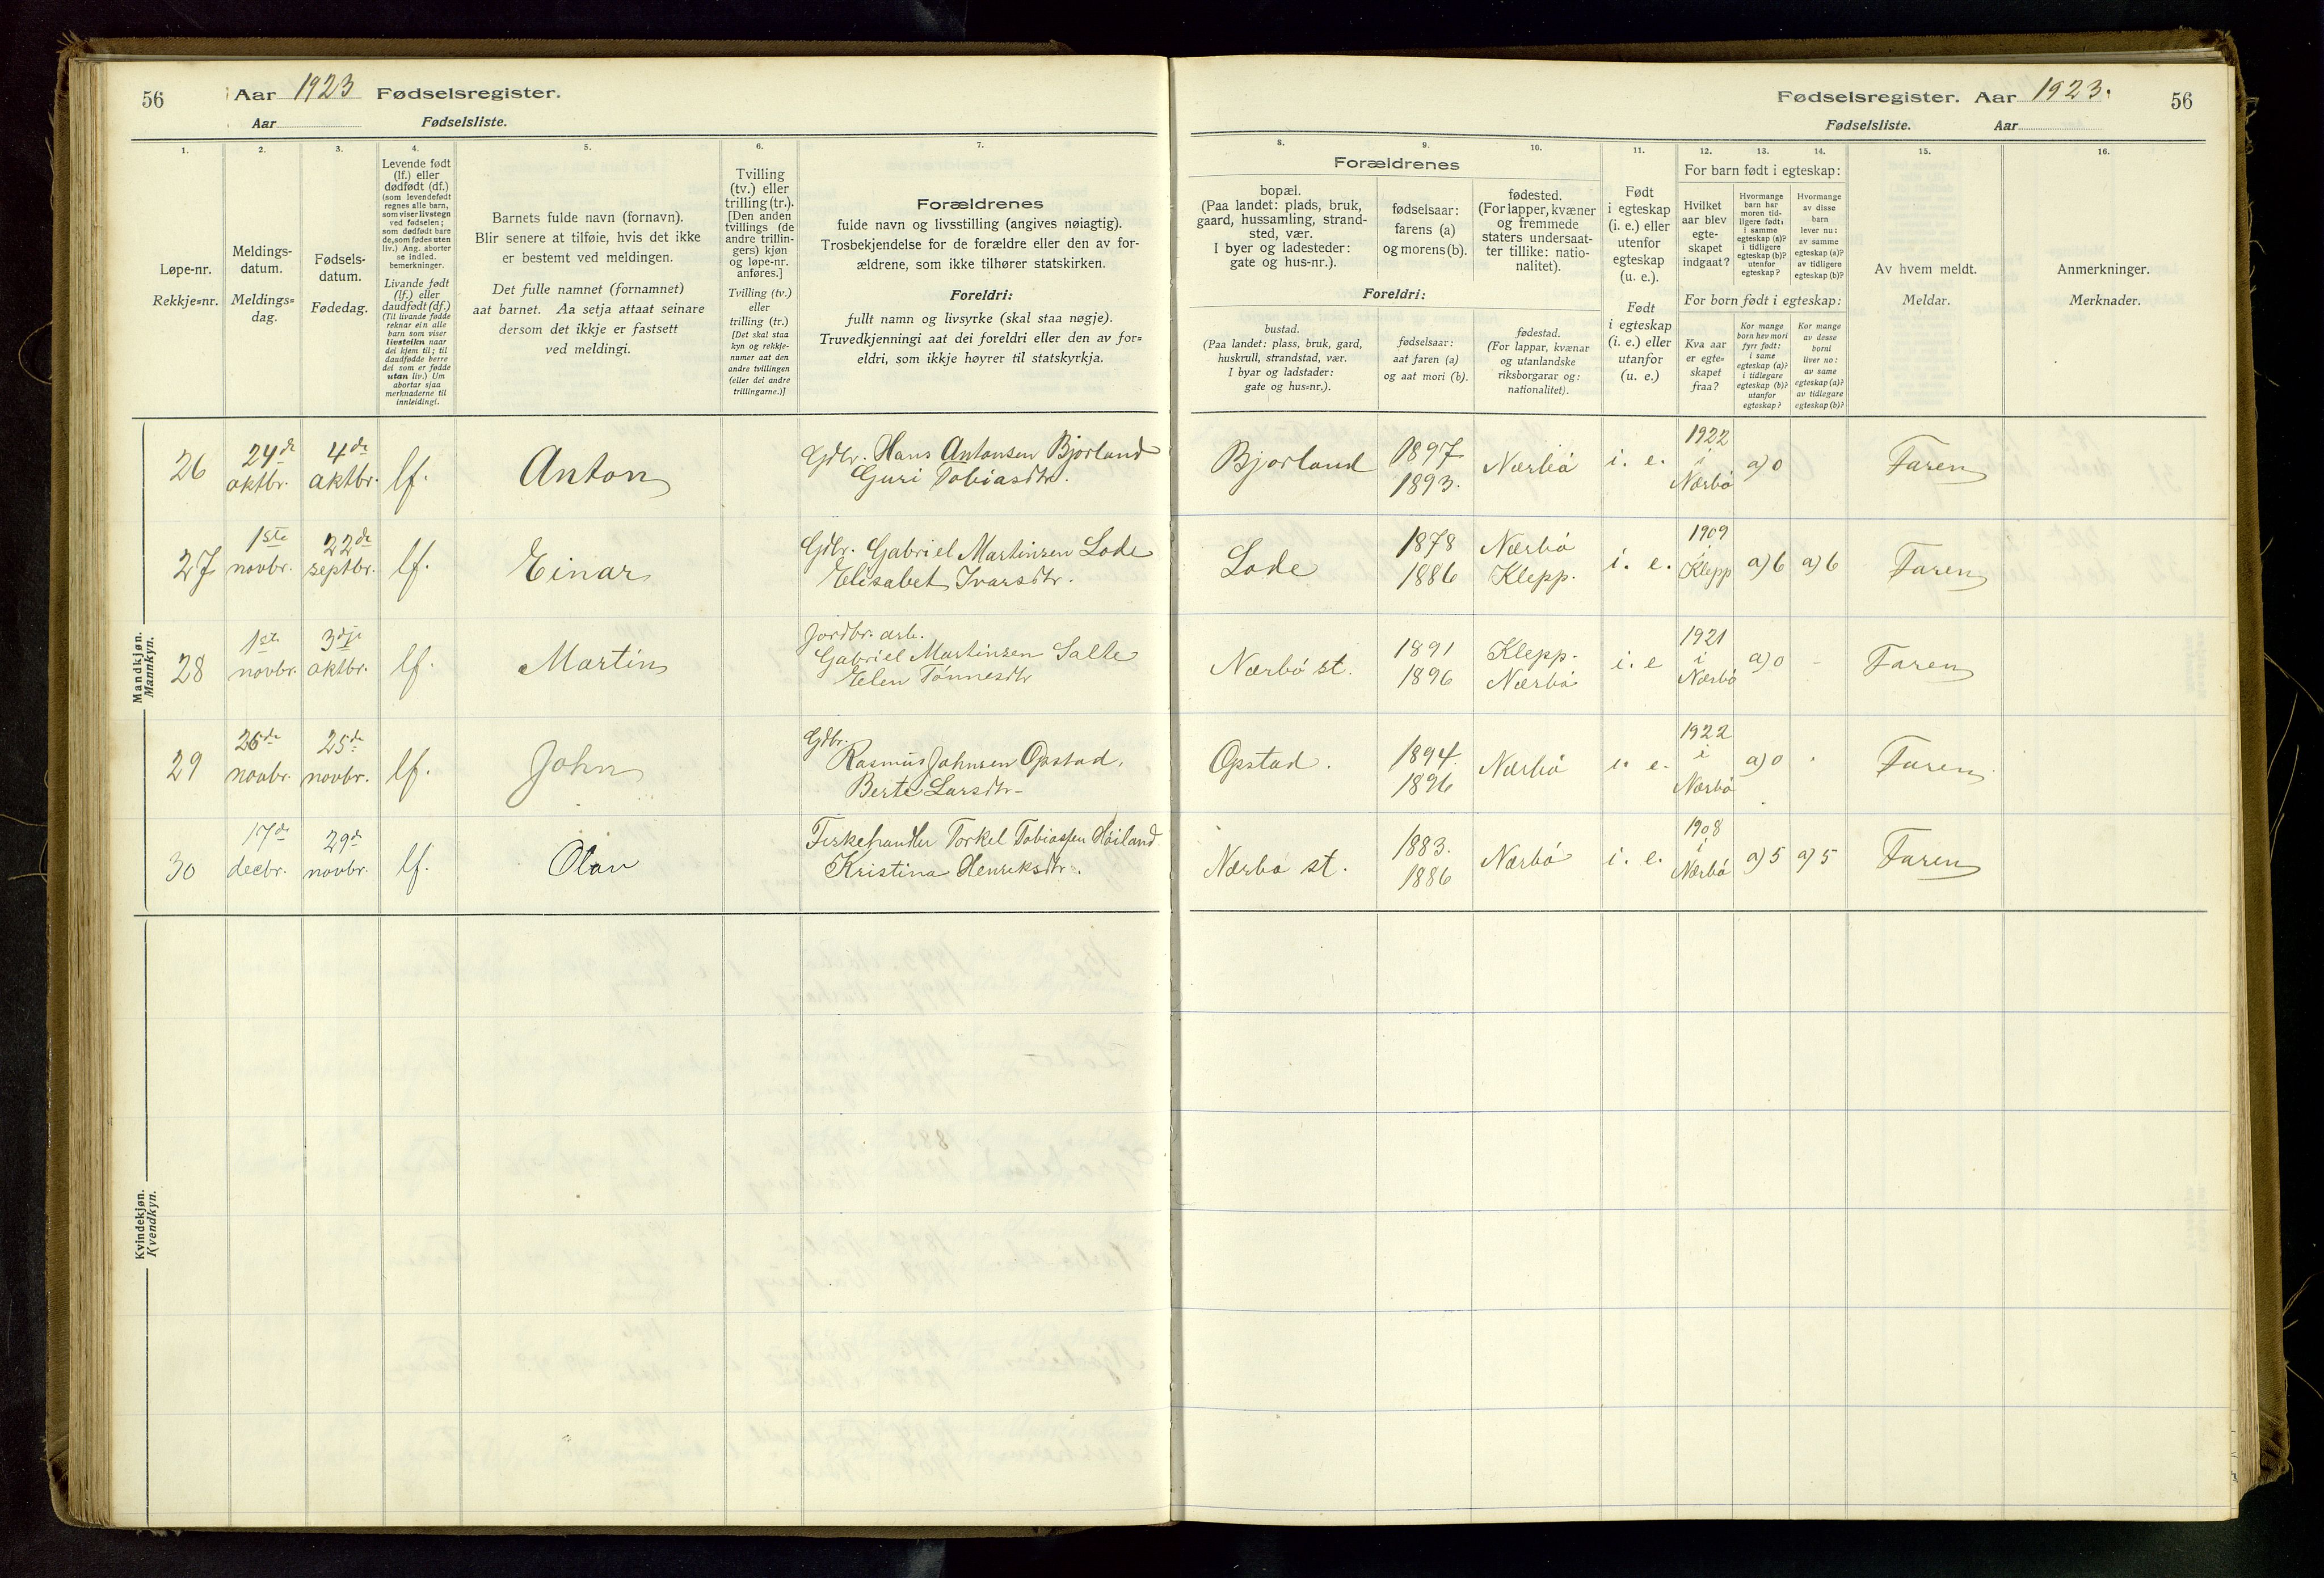 56
Aar 1923 Fødselsregister.
Aar Fødselsliste.
1.
2.
3.
4.
5.
6.
7.
Løpe-nr.
Rekkje=nr.
Meldings-
datum.
Meldings=
dag.
Fødsels-
datum.
Fødedag.
Levende født
(lf.) eller
dødfødt (df.)
(som levendefødt
regnes alle barn,
som viser livstegn
ved fødselen;
som dødfødt bare
de, som fødes uten
liv.) Ang. aborter
se indled.
bemerkninger.
Livande født
(lf.) eller
daudfødt (df.)
(Til livande fødde
reknar ein alle
barn som viser
livsteikn naar
dei kjem til; til
daudfødde berre
dei som er fødde
utan liv.) Um
abortar sjaa
merknaderne til
innleidingi.
Barnets fulde navn (fornavn).
Blir senere at tilføie, hvis det ikke
er bestemt ved meldingen.
Det fulle namnet (fornamnet)
aat barnet. Aa setja attaat seinare
dersom det ikkje er fastsett
ved meldingi.
Tvilling
(tv.) eller
trilling (tr.).
[Den anden
tvillings (de
andre trillin-
gers) kjøn
og løpe-nr.
anføres.]
Tvilling (tv.)
eller
trilling (tr.)
[Det skal staa
kyn og rekkje-
numer aat den
andre tvillingen
(eller dei andre
trillingarne.)]
Forældrenes
fulde navn og livsstilling (angives nøiagtig).
Trosbekjendelse for de forældre eller den av for-
ældrene, som ikke tilhører statskirken.
Foreldri:
fullt namn og livsyrke (skal staa nøgje).
Truvedkjenningi aat dei foreldri eller den av for=
eldri, som ikkje høyrer til statskyrkja.
Mandkjøn.
Mannkyn.
26 24de oktbr. 4de oktbr. lf. Anton
Gdbr. Hans Antonsen Bjorland
Guri Tobiasdtr.
27 1ste novbr. 22de septbr. lf. Einar
Gdbr. Gabriel Martinsen Lode
Elisabet Ivarsdtr.
28 1ste novbr. 3dje oktbr. lf. Martin
Jordbr. arb.
Gabriel Martinsen Salte
Elen Tönnesdtr
29 26de novbr. 25de novbr. lf. John
Gdbr.
Rasmus Johnsen Opstad.
Berte Larsdtr.
30 17de decbr. 29de novbr. lf. Olav
Fiskehandler Torkel Tobiassen Höiland
Kristina Henriksdtr.
Kvindekjøn.
Kvendkyn.
Fødselsregister. Aar 1923. 56
Fødselsliste. Aar
8.
9.
10.
11.
12.
13.
14.
15.
16.
Forældrenes
bopæl.
(Paa landet: plads, bruk,
gaard, hussamling, strand-
sted, vær.
I byer og ladesteder:
gate og hus-nr.).
fødselsaar:
farens (a)
og morens (b).
fødested.
(For lapper, kvæner
og fremmede
staters undersaat-
ter tillike: natio-
nalitet).
Foreldri:
bustad.
(Paa landet: plass, bruk, gard,
huskrull, strandstad, vær.
I byar og ladstader:
gate og hus=nr.).
fødselsaar:
aat faren (a)
og aat mori (b).
fødestad.
(For lappar, kvænar
og utanlandske
riksborgarar og:
nationalitet).
Født
i egteskap
(i. e.) eller
utenfor
egteskap
(u. e.).
Født
i egteskap
(i. e.) eller
utanfor
(u. e.)
For barn født i egteskap:
Hvilket
aar blev
egte-
skapet
indgaat?
Hvormange
barn har
moren tid-
ligere født:
i samme
egteskap (a)?
i tidligere
egteskap (b)?
utenfor
egteskap?
Hvormange
av disse
barn
lever nu:
av samme
egteskap (a)?
av tidligere
egteskap (b)?
For born født i egteskap:
Kva aar
er egte=
skapet
fraa?
Kor mange
born hev mori
fyrr født:
i same
egteskap (a)?
i tidlegare
egteskap (b)?
utanfor
egteskap?
Kor mange
av desse
borni
liver no:
av same
egteskap (a)?
av tidlegare
egteskap (b)?
Av hvem meldt.
Meldar.
Anmerkninger.
Merknader.
Bjorland 1897 1893. Nærbö i. e. 1922 i Nærbö a) 0 Faren
Lode 1878 1886 Nærbö Klepp. i. e. 1909 i Klepp a) 6 a) 6 Faren
Nærbö st. 1891 1896 Klepp. Nærbö i. e 1921 i Nærbö a) 0 - Faren
Opstad. 1894. 1896 Nærbö i. e. 1922 i Nærbö a) 0 Faren
Nærbo st. 1883. 1886 Nærbö i. e. 1908 i Nærbö a) 5 a) 5 Faren